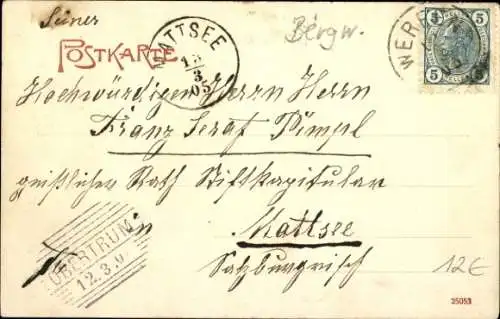 Seiner
Bergw.
POSTKARTE
MATTSEE
13
3
05
WER
5 5
5 5
Hochwürdigen Herrn Herrn
Franz Seraf Pimpl
geistlicher Rath Stiftkapitular
in
Mattsee
Salzburgrisch
OBERTRUM
12.3.0
12€
25053